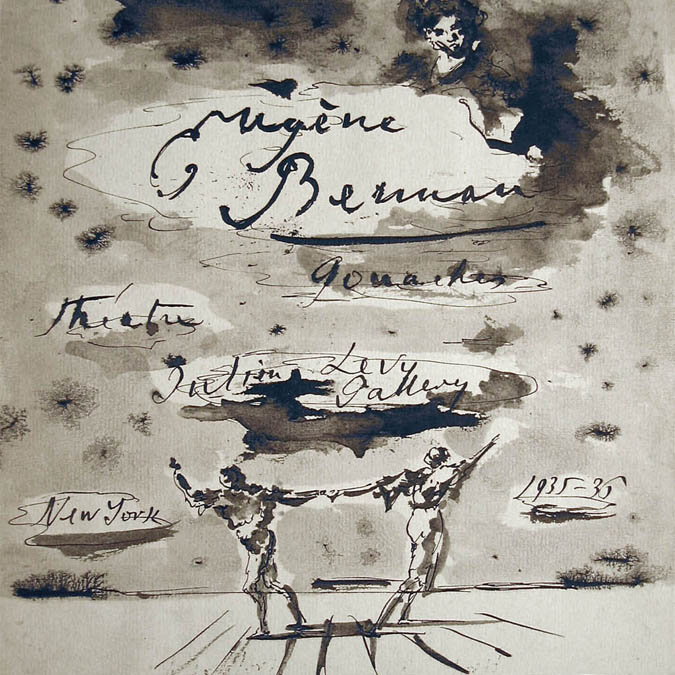 Eugène
Berman
gouaches
théatre
Julien Levy
Gallery
New York
1935-36